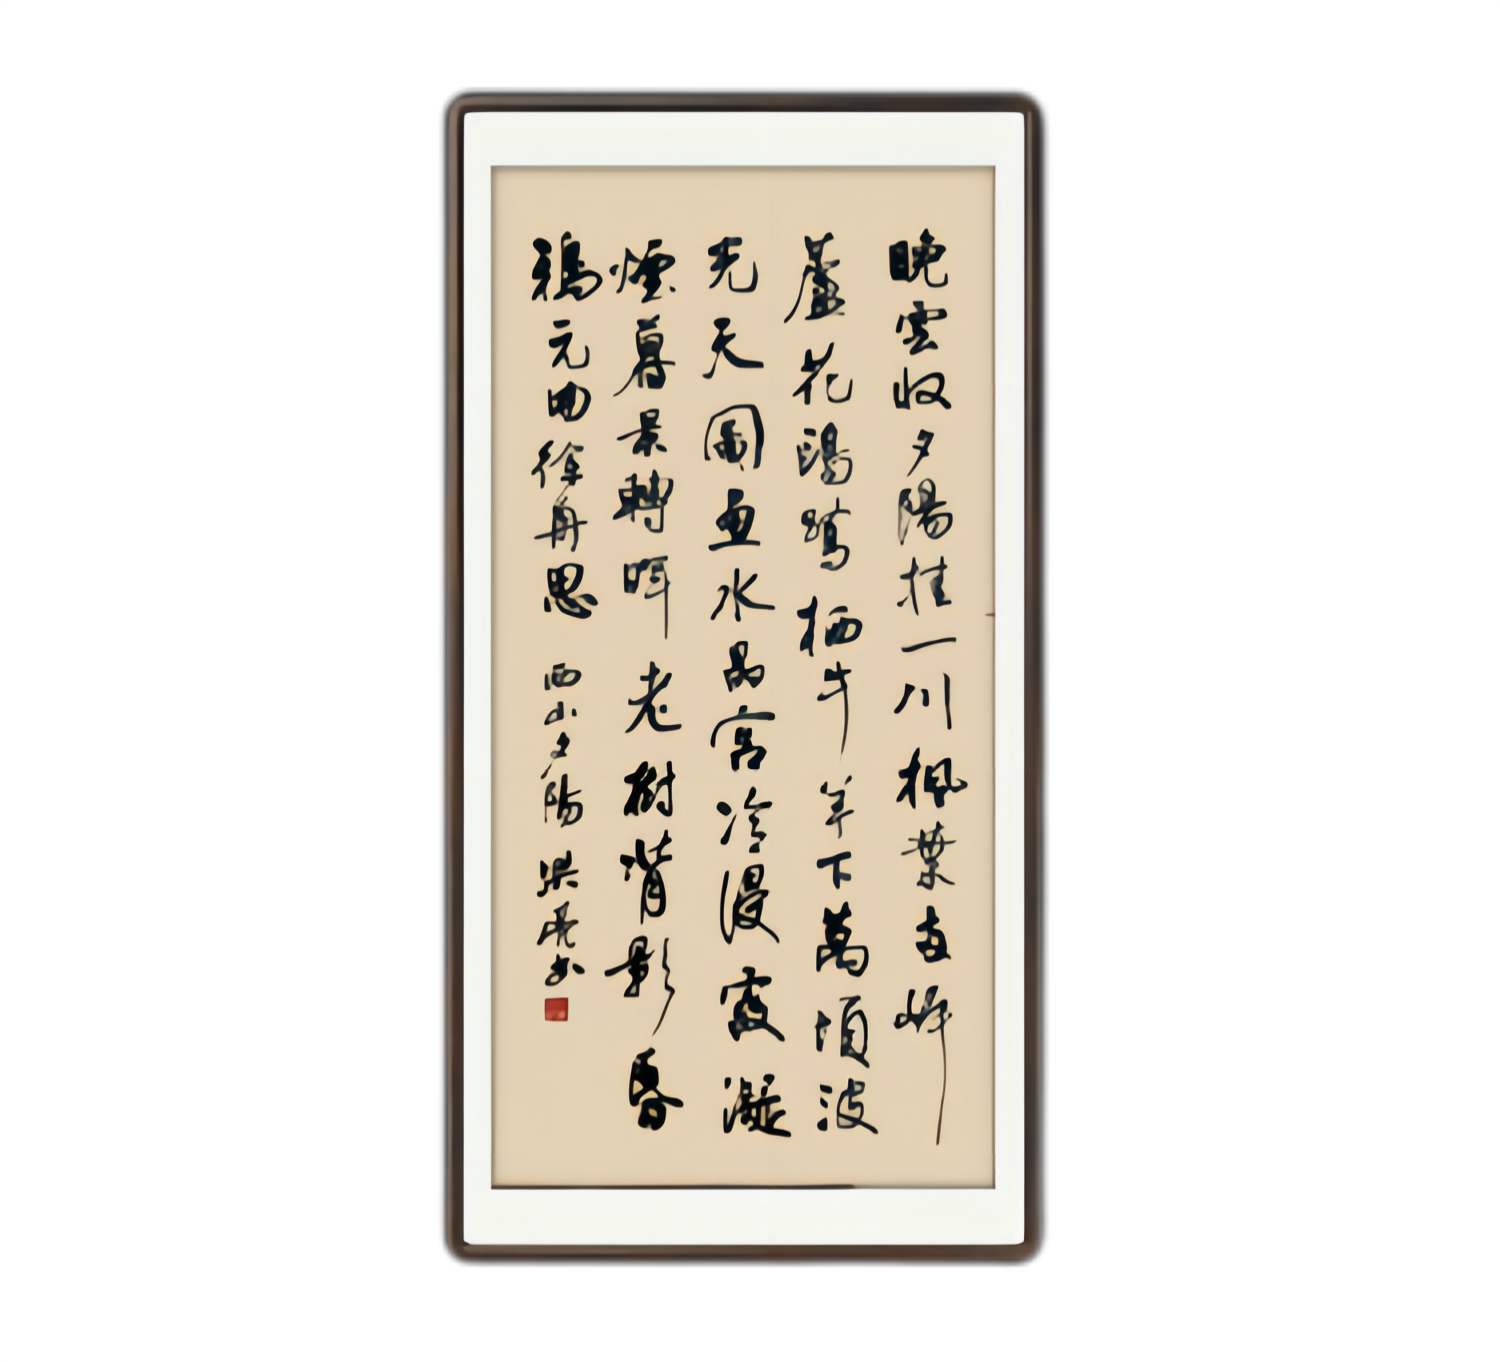 晚雲收夕陽挂一川楓葉兩岸
蘆花鷗鷺栖牛羊下萬頃波
光天圖畫水晶宮冷浸霞凝
煙暮景轉暉老樹背影昏
鴉元曲徐再思 西山夕陽 洪亮书